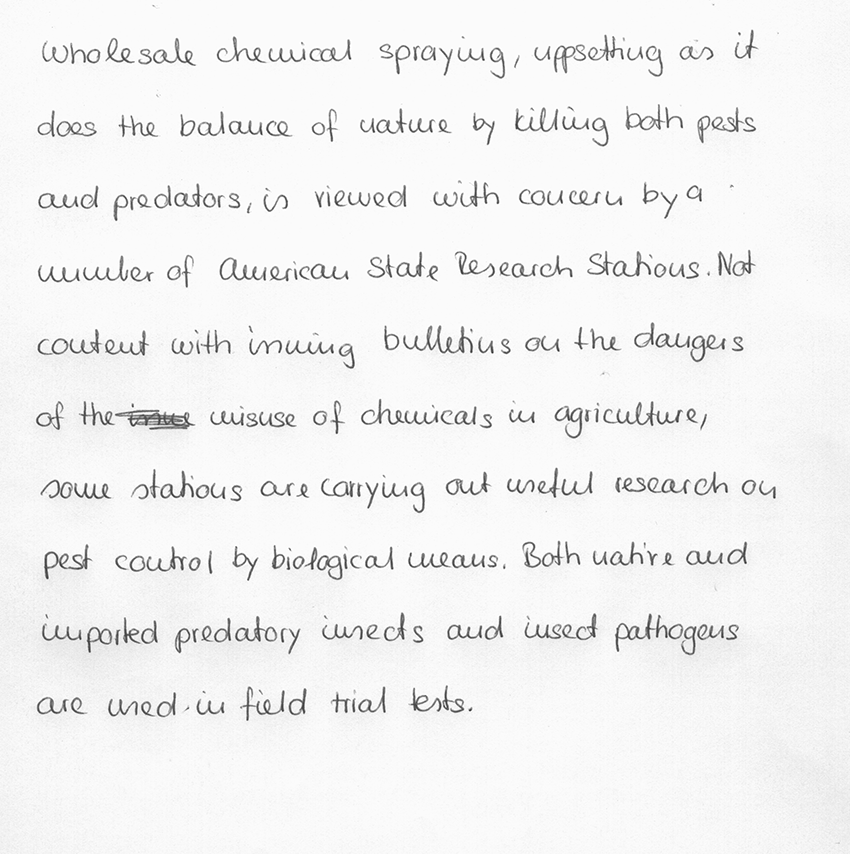 Wholesale chemical spraying, uppsetting as it
does the balance of nature by killing both pests
and predators, is viewed with concern by a
number of American State Research Stations. Not
content with issuing bulletins on the dangers
of the misuse of chemicals in agriculture,
some stations are carrying out useful research on
pest control by biological means. Both native and
imported predatory insects and insect pathogens
are used in field trial tests.